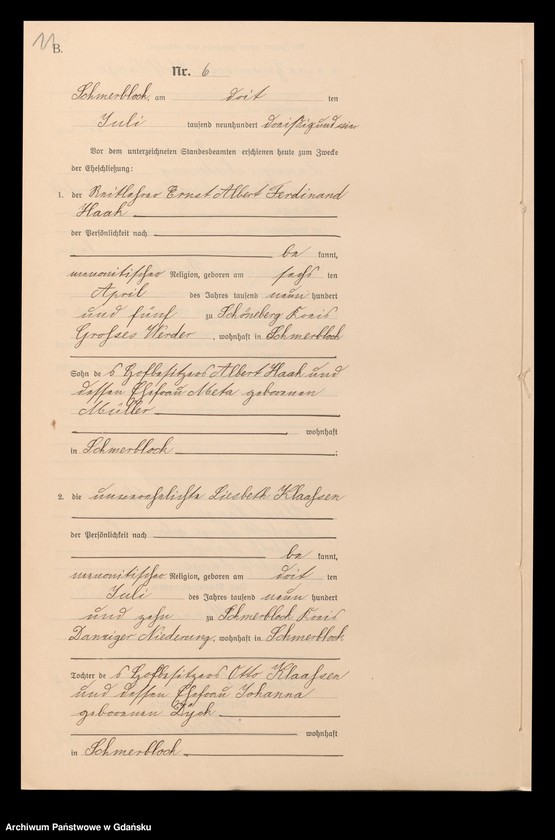 11
B.
Nr. 6
Schmerblock, am drit ten
Juli tausend neunhundert dreißig und
Vor dem unterzeichneten Standesbeamten erschienen heute zum Zwecke
der Eheschließung:
1. der Ernst Albert Ferdinand
Haak
der Persönlichkeit nach
be kannt,
menonitischer Religion, geboren am sechs ten
April des Jahres tausend neun hundert
und fünf zu Schöneberg Kreis
Grosses Werder, wohnhaft in Schmerblock
Sohn de s Hofbesitzers Albert Haak und
dessen Ehefrau Meta geborenen
Müller
wohnhaft
in Schmerblock ;
2. die unverehelichte Liesbeth Klaassen
der Persönlichkeit nach
be kannt,
menonitischer Religion, geboren am drit ten
Juli des Jahres tausend neun hundert
und zehn zu Schmerblock Kreis
Danziger Niederung, wohnhaft in Schmerblock
Tochter de s Hofbesitzers Otto Klaassen
und dessen Ehefrau Johanna
geborenen Dyck
wohnhaft
in Schmerblock
Archiwum Państwowe w Gdańsku